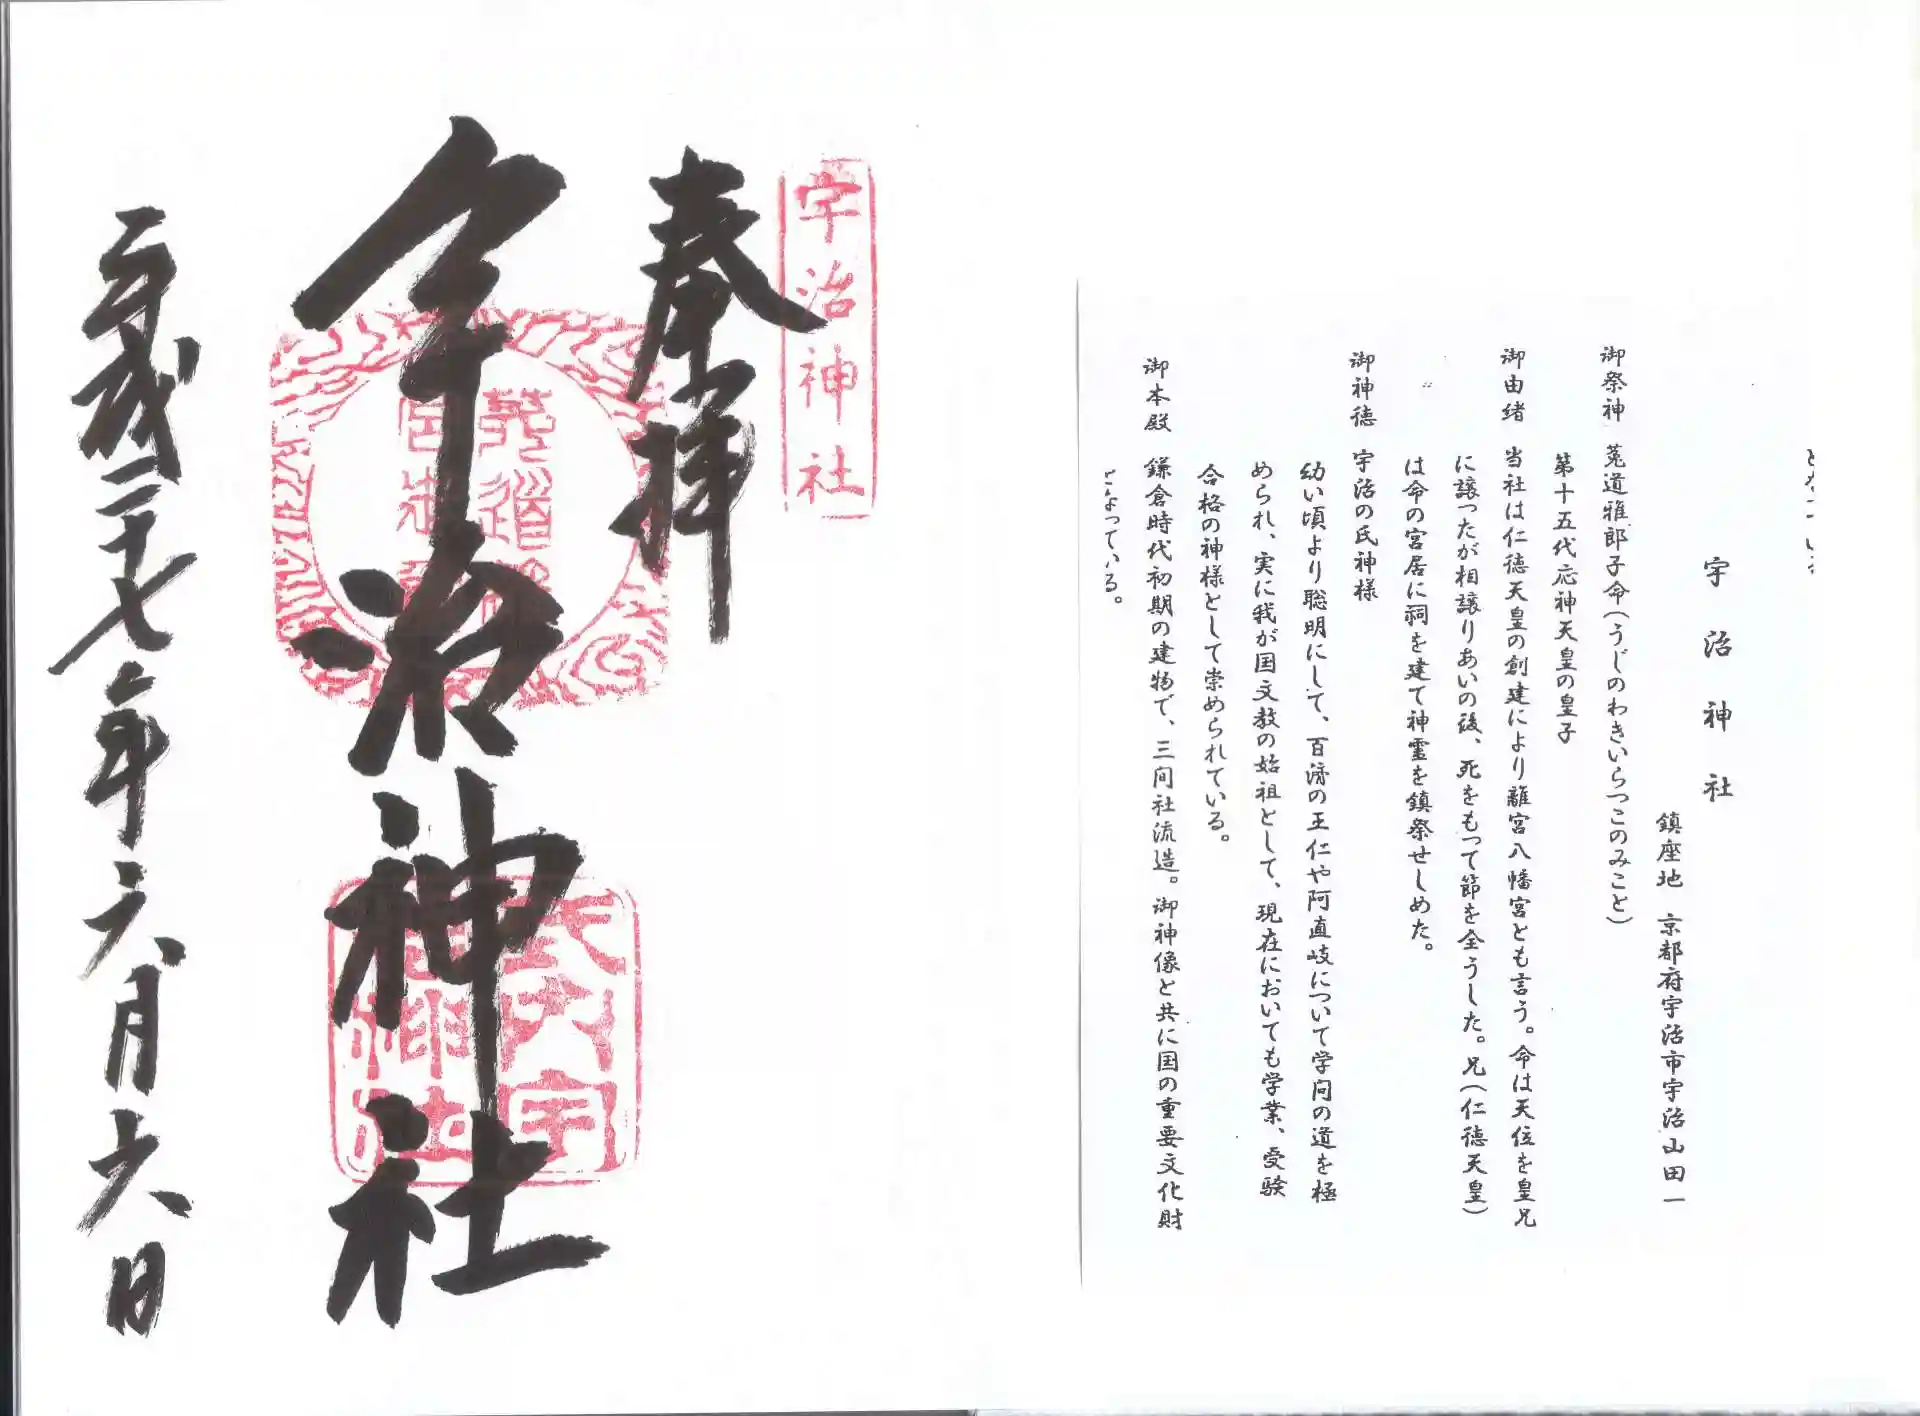 宇治神社
鎮座地 京都府宇治市宇治山田一
御祭神 菟道雅郎子命(うじのわきいらつこのみこと)
第十五代応神天皇の皇子
御由緒 当社は仁徳天皇の創建により離宮八幡宮とも言う。命は天位を皇兄
に譲ったが相譲りあいの後、死をもって節を全うした。兄(仁徳天皇)
は命の宮居に祠を建て神霊を鎮祭せしめた。
御神徳 宇治の氏神様
幼い頃より聡明にして、百済の王仁や阿直岐について学问の道を極
められ、実に我が国文教の始祖として、現在においても学業、受験
合格の神様として崇められている。
御本殿 鎌倉時代初期の建物で、三间社流造。御神像と共に国の重要文化財
となっている。
宇治神社
奉拝
宇治神社
平成二十七年六月六日